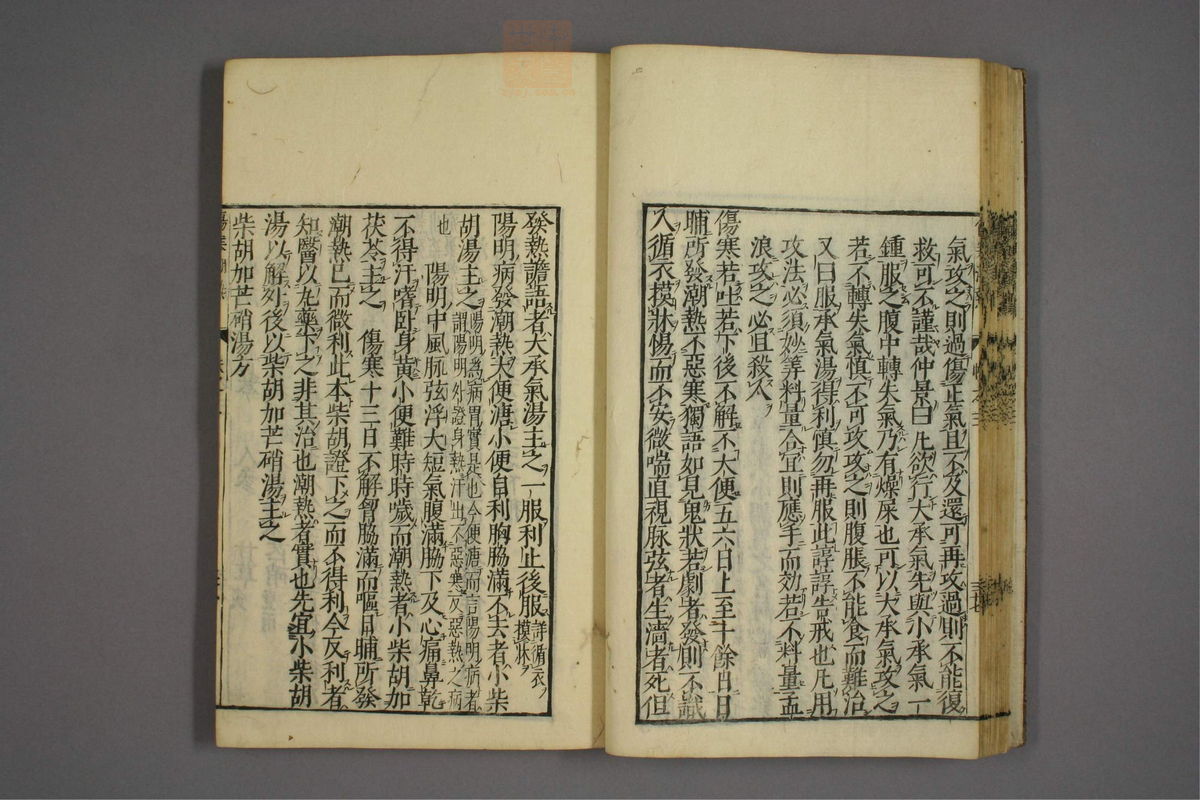 氣攻之則過傷正氣且不及還可再攻過則不能復
救可不謹哉仲景曰凡欲行大承氣先與小承氣一
鍾服之腹中轉失氣乃有燥屎也可以大承氣攻之
若不轉失氣慎不可攻攻之則腹脹不能食而難治
又曰服承氣湯得利慎勿再服此諄諄告戒也凡用
攻法必須妙筭料量合宜則應手而効若不料量孟
浪攻之必且殺人
傷寒若吐若下後不解不大便五六日上至十餘日日
晡所發潮熱不惡寒獨語如見鬼狀若劇者發則不識
人循衣摸牀惕而不安微喘直視脉弦者生濇者死但
發熱譫語者大承氣湯主之一服利止後服詳循衣摸牀
陽明病發潮熱大便溏小便自利胸脇滿不去者小柴
胡湯主之陽明為病胃實是也今便溏而言陽明病者
謂陽明外證身熱汗出不惡寒反惡熱之病
也
陽明中風脉弦浮大短氣腹滿脇下及心痛鼻乾
不得汗嗜卧身黃小便難時時噦而潮熱者小柴胡加
茯苓主之 傷寒十三日不解胷脇滿而嘔日晡所發
潮熱已而微利此本柴胡證下之而不得利今反利者
知醫以丸藥下之非其治也潮熱者實也先宜小柴胡
湯以解外後以柴胡加芒硝湯主之
柴胡加芒硝湯方